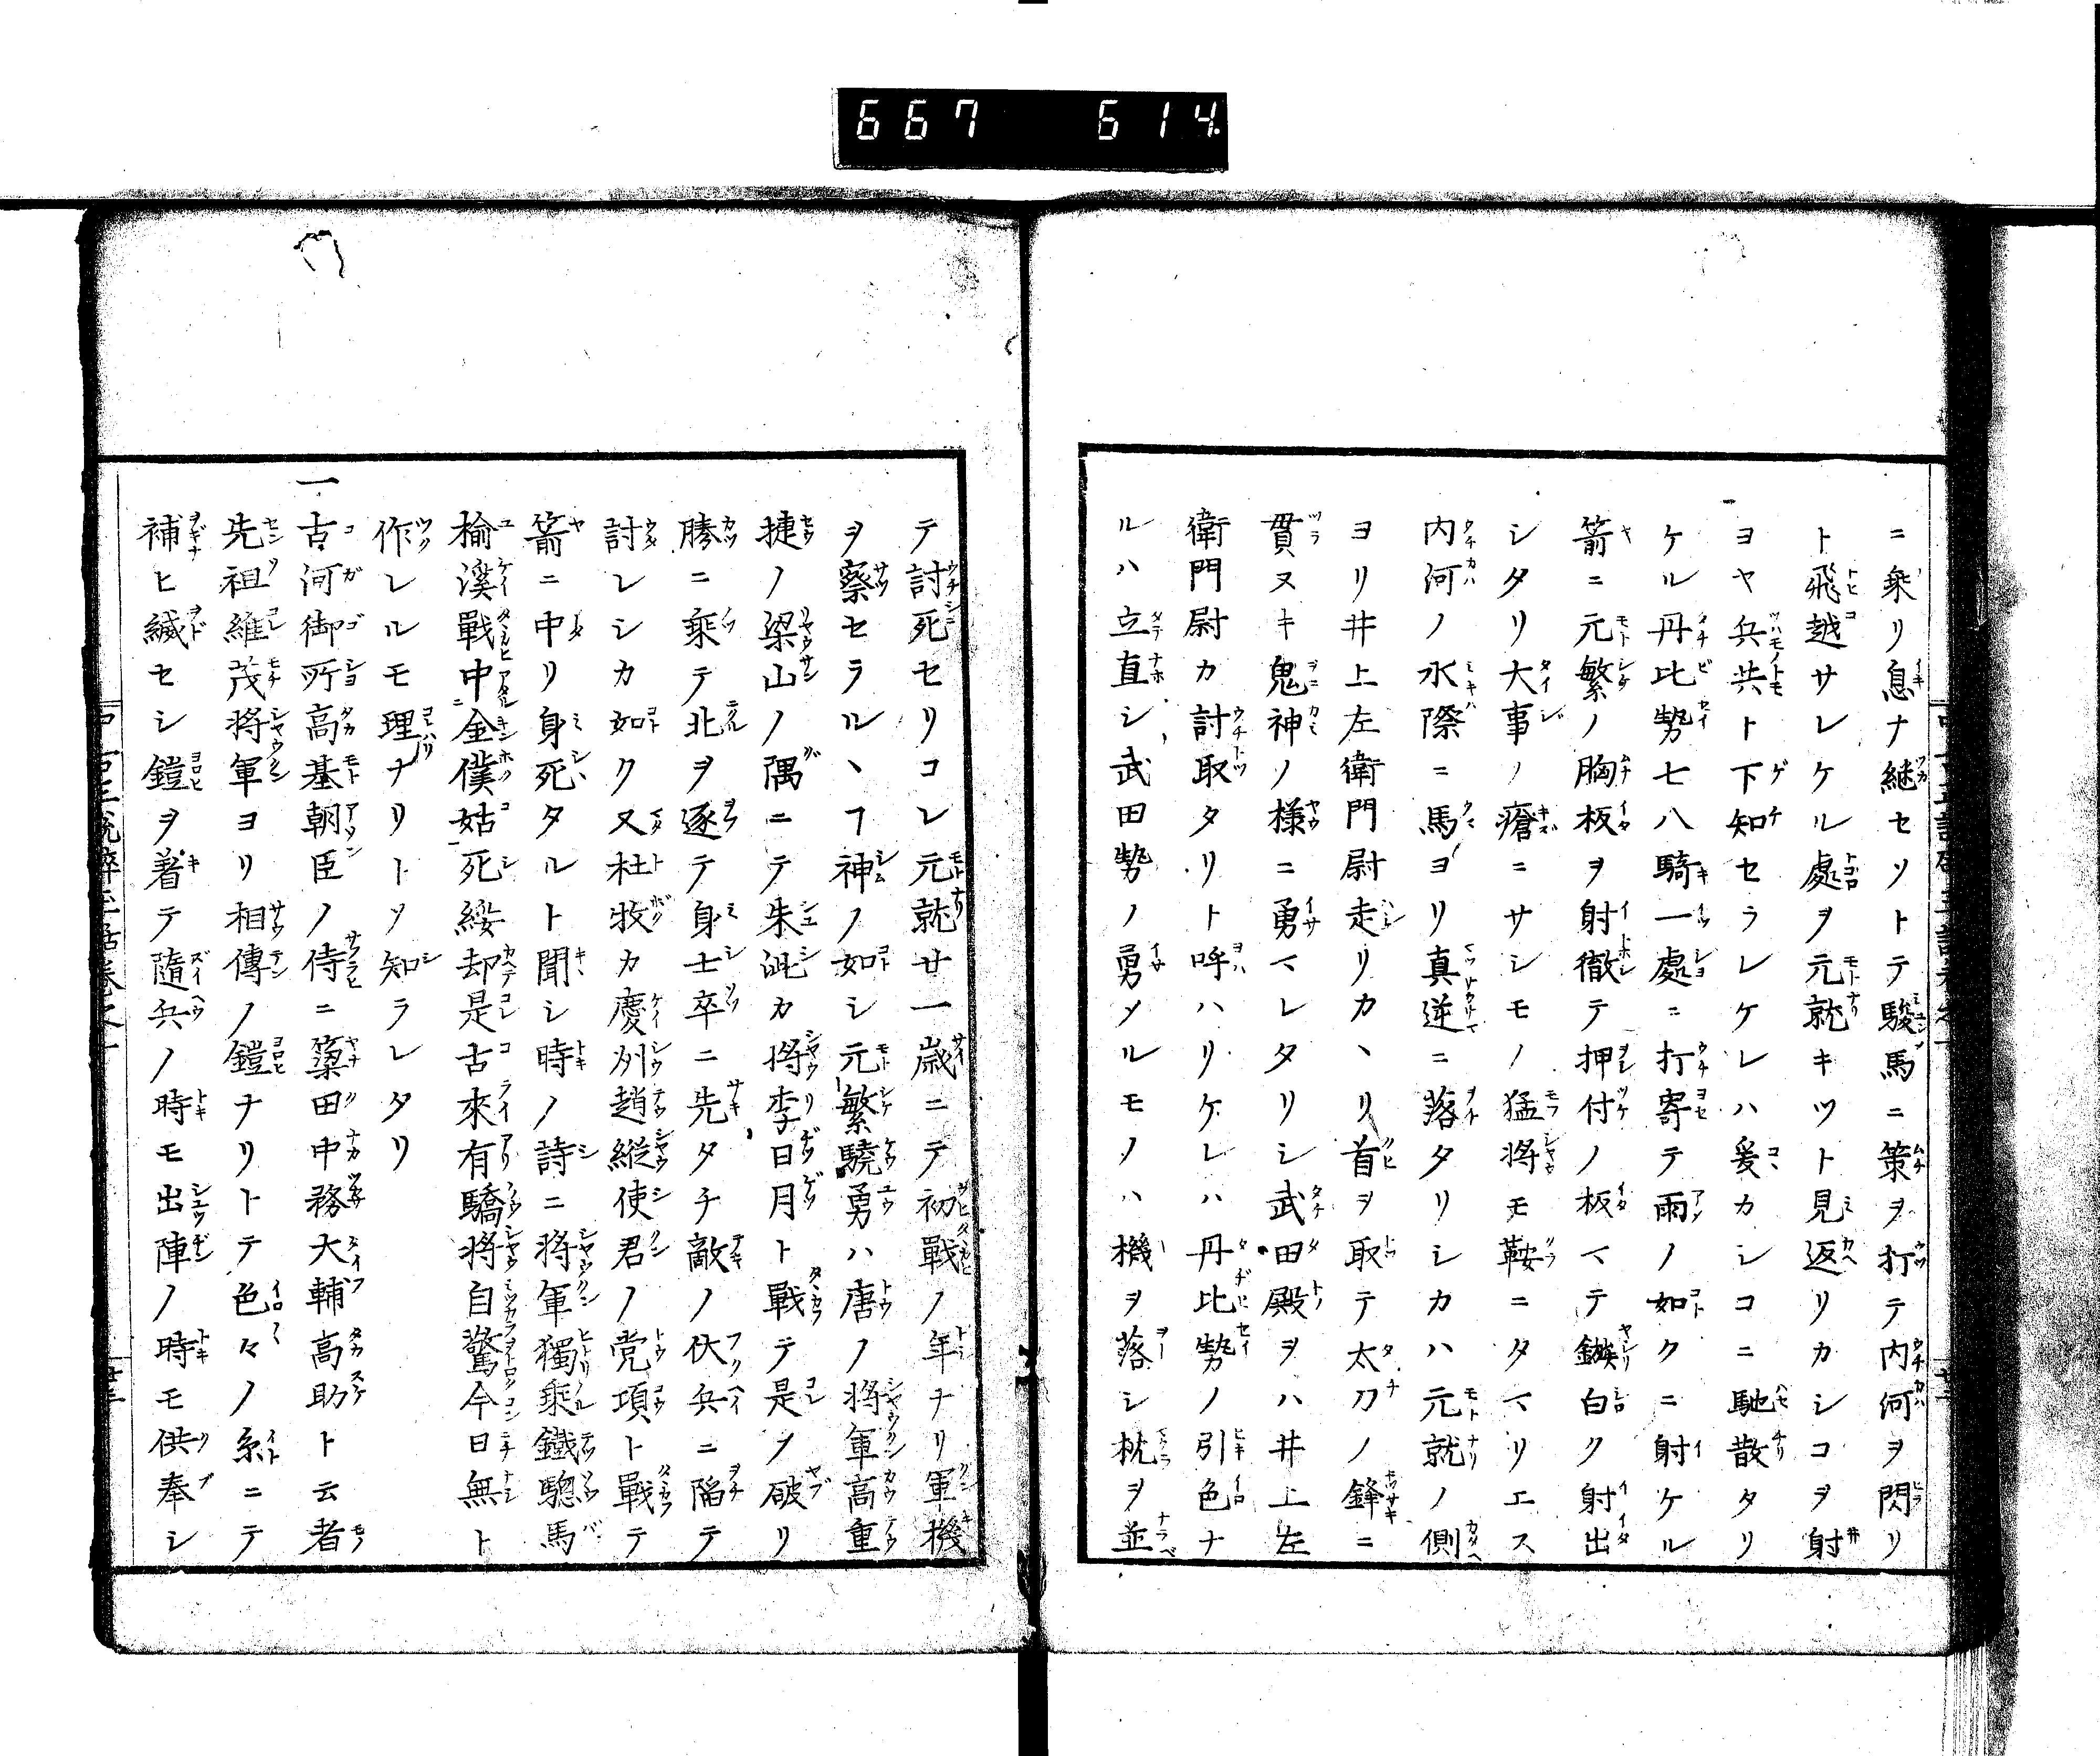 667 614
ニ乘リ息ナ継セソトテ駿馬ニ策ヲ打テ内河ヲ閃リ
ト飛越サレケル處ヲ元就キツト見返リカシコヲ射
ヨヤ兵共ト下知セラレケレハ爰カシコニ馳散タリ
ケル丹比勢七八騎一處ニ打寄テ雨ノ如クニ射ケル
箭ニ元繁ノ胸板ヲ射徹テ押付ノ板マテ鏃白ク射出
シタリ大事ノ瘡ニサシモノ猛将モ鞍ニタマリエス
内河ノ水際ニ馬ヨリ真逆ニ落タリシカハ元就ノ側
ヨリ井上左衛門尉走リカヽリ首ヲ取テ太刀ノ鋒ニ
貫ヌキ鬼神ノ様ニ勇マレタリシ武田殿ヲハ井上左
衛門尉カ討取タリト呼ハリケレハ丹比勢ノ引色ナ
ルハ立直シ武田勢ノ勇メルモノハ機ヲ落シ枕ヲ並
テ討死セリコレ元就廿一歳ニテ初戰ノ年ナリ軍機
ヲ察セラルヽフ神ノ如シ元繁驍勇ハ唐ノ将軍高重
捷ノ梁山ノ隅ニテ朱泚カ将李日月ト戰テ是ヲ破リ
勝ニ乘テ北ヲ逐テ身士卒ニ先タチ敵ノ伏兵ニ陥テ
討レシカ如ク又杜牧カ慶州趙縦使君ノ党項ト戰テ
箭ニ中リ身死タルト聞シ時ノ詩ニ将軍獨乘鐵驄馬
榆溪戰中金僕姑死綏却是古來有驕将自驚今日無ト
作レルモ理ナリトソ知ラレタリ
一古河御所高基朝臣ノ侍ニ簗田中務大輔高助ト云者
先祖維茂将軍ヨリ相傳ノ鎧ナリトテ色々ノ糸ニテ
補ヒ縅セシ鎧ヲ着テ隨兵ノ時モ出陣ノ時モ供奉シ